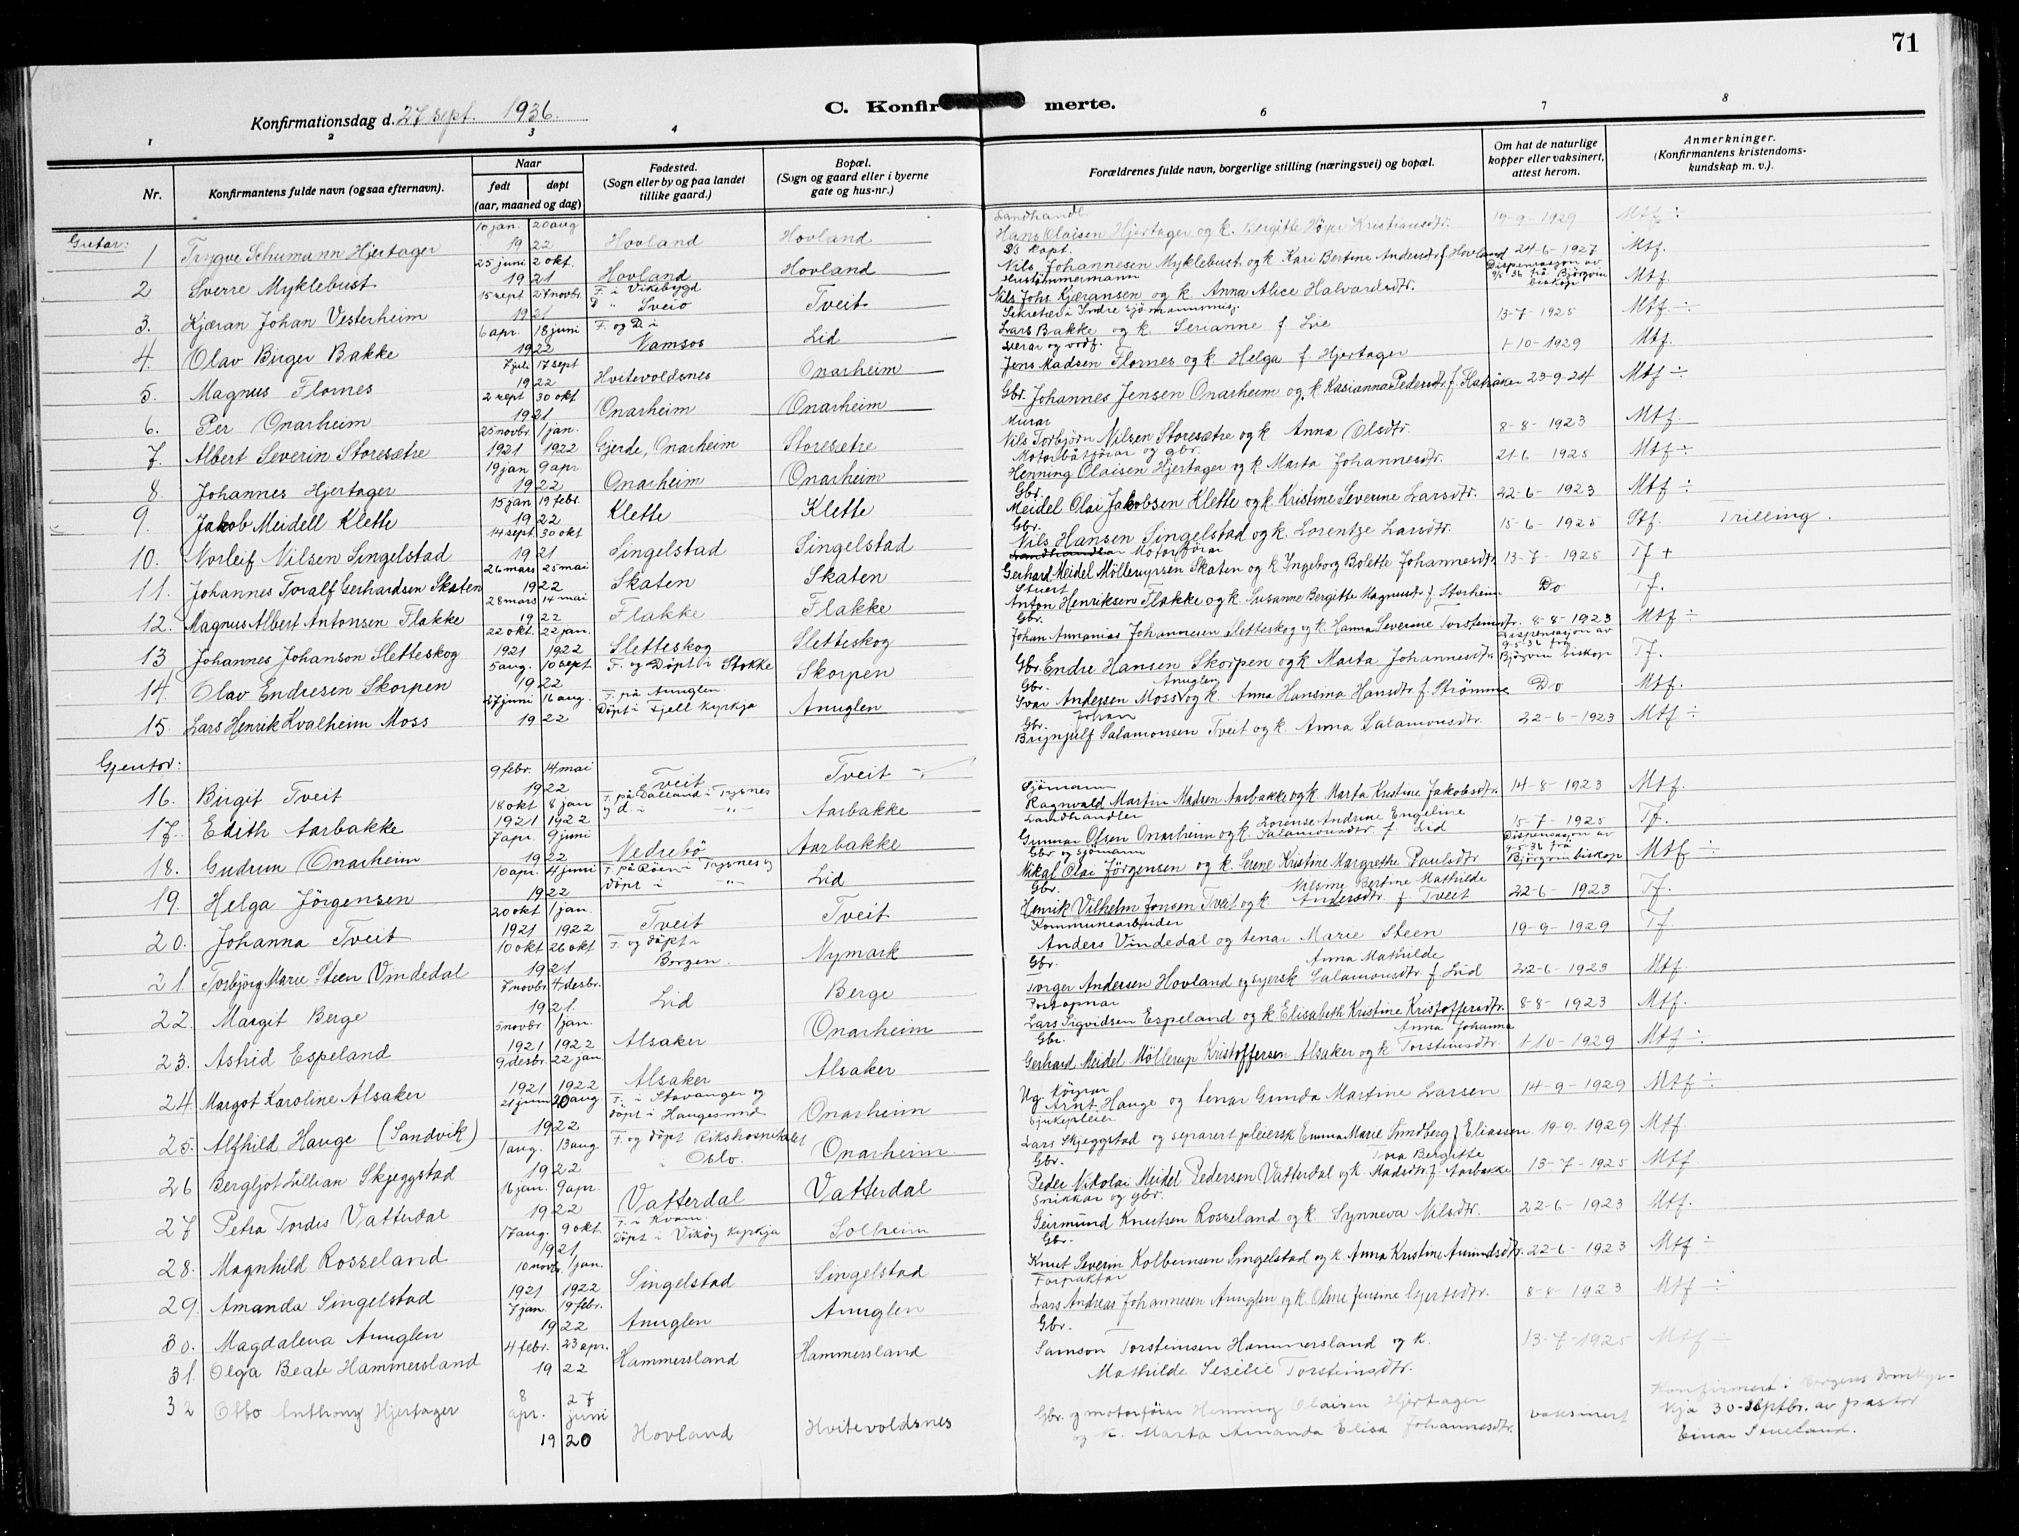 71
Konfirmationsdag d. 27 sept. 1936.
C. Konfirmerte.
1 2 3 4 6 7 8
Nr.
Konfirmantens fulde navn (ogsaa efternavn).
Naar
født døpt
(aar, maaned og dag)
Fødested.
(Sogn eller by og paa landet
tillike gaard.)
Bopæl.
(Sogn og gaard eller i byerne
gate og hus-nr.)
Forældrenes fulde navn, borgerlige stilling (næringsvei) og bopæl.
Om hat de naturlige
kopper eller vaksinert,
attest herom.
Anmerkninger.
(Konfirmantens kristendoms-
kundskap m. v.).
Gutar:
1 Trygve Schumann Hjertager 10 jan. 20 aug 1922 Hovland Hovland Landhandl. Hans Olaisen Hjertager og k. Bergitte Kristiansdtr. 19-9-1929 Mtf ÷
2 Sverre Myklebust 25 juni 2 okt. 1921 Hovland Hovland D/s kapt. Nils Johannesen Myklebust og k Kari Bertine Andersdtr f. Hovland 24-6-1927 Mtf.
3. Kjæran Johan Vesterheim 15 sept 27 novbr. 1921 F. i Vikebygd D " Sveio Tveit Hustømmermann Nils Johs. Kjæransen og k. Anna Alice Halvardsdtr. Dispensasjon av 9/5 36 frå Bjørgvin biskop Mtf.
4. Olav Birger Bakke 6 apr. 18 juni 1922 F. og D i Namsos Lid Sekretær i Indre sjømannsmisj. Lars Bakke og k. Serianne f. Lie 13-7-1925 Mtf. ÷
5. Magnus Flornes 7 juli 17 sept 1922 Hvitevoldsnes Onarheim Lærar og ordf. Jens Madsen Flornes og k. Helga f. Hjertager 1-10-1929 Mtf.
6. Per Onarheim 2 sept 30 okt 1921 Onarheim Onarheim Gbr. Johannes Jensen Onarheim og k Kasianna Pedersdtr f. Hatråker 23-9-24 Mtf ÷
7. Albert Severin Storesætre 25 novbr. 1 jan. 1921 1922 Gjerde, Onarheim Storesætre Murar Nils Torbjørn Nilsen Storesætre og k Anna Olsdtr. 8-8-1923 Mtf.
8 Johannes Hjertager 19 jan 9 apr. 1922 Onarheim Onarheim Motorbåtførar og gbr. Henning Olaisen Hjertager og k Marta Johannesdtr. 21-6-1925 Mtf ÷
9. Jakob Meidell Klette 15 jan 19 febr. 1922 Klette Klette Gbr. Meidel Olai Jakobsen Klette og k Kristine Severine Larsdtr. 22-6-1923 Mtf ÷
10. Norleif Nilsen Singelstad 14 sept. 30 okt 1921 Singelstad Singelstad Gbr. Nils Hansen Singelstad og k. Lorentze Larsdtr. 15-6-1925 Stf. Trilling.
11. Johannes Toralf Gerhardsen Skaten 26 mars 25 mai 1922 Skaten Skaten Landhandlar Motorførar Gerhard Meidel Mölleryrsen Skaten og k Ingeborg Bolette Johannesdtr. 13-7-1925 Tf +
12. Magnus Albert Antonsen Flakke 28 mars 14 mai 1922 Flakke Flakke Stuert Anton Henriksen Flakke og k. Susanne Bergitte Magnusdtr f. Storheim Do Tf.
13 Johannes Johanson Sletteskog 22 okt. 22 jan. 1921 1922 Sletteskog Sletteskog Gbr. Johan Annanias Johannesen Sletteskog og k. Hanna Severine Torsteinsdtr. 8-8-1923 Mtf ÷
14. Olav Endresen Skorpen 5 aug. 10 sept. 1922 F. og Døpt i Stokke Skorpen Gbr. Endre Hansen Skorpen og k Marta Johannesdtr. Dispensasjon av 9-5-36 frå Bjørgvin biskop Tf.
15. Lars Henrik Kvalheim Moss 27 juni 16 aug. 1922 F. på Anuglen Døpt i Fjell kyrkja Anuglen Gbr. Ivar Andersen Moss Anuglen og k. Anna Hansina Hansdtr. f. Strømme Do Mtf.
Gjentor:
16. Birgit Tveit 9 febr. 14 mai 1922 Tveit Tveit Gbr. Brynjulf Johan Salamonsen Tveit og k. Anna Salamonsdtr. 22-6-1923 Mtf ÷
17. Edith Aarbakke 18 okt 8 jan 1921 1922 F. på Dalland i Tysnes og d. i " Aarbakke Sjømann Ragnvald Martin Madsen Aarbakke og k. Marta Kristine Jakobsdtr. 14-8-1923 Mtf.
18. Gudrun Onarheim 7 apr. 9 juni 1922 Nedrebö Aarbakke Landhandler Gunnar Olsen Onarheim og k. Lorense Andrine Engeline Salamonsdtr. f. Lid 15-7-1925 Tf.
19. Helga Jörgensen 10 apr. 4 juni 1922 F. på Röen i Tysnes og Døpt i " Lid Gbr og sjømann Nikal Olai Jörgensen og k. Serene Kristine Margrethe Paulsdtr Dispensasjon av 9-5-36 frå Bjørgvin biskop Mtf ÷
20. Johanna Tveit 20 okt 1 jan. 1921 1922 Tveit Tveit Gbr. Henrik Vilhelm Jonsen Tveit og k Nilsine Bertine Mathilde Andersdtr. f Tveit 22-6-1923 Tf.
21. Torbjörg Marie Steen Vindedal 10 okt 26 okt 1921 F. og døpt i Bergen. Nymark Kommunearbeider Anders Vindedal og tenar Marie Steen 19-9-1929 Tf.
22. Margit Berge 7 novbr. 4 desbr. 1921. Lid Berge Gbr. Torger Andersen Hovland og syersk Anna Mathilde Salamonsdtr. f. Lid 22-6-1923 Mtf.
23. Astrid Espeland 5 novbr. 1 jan. 1921 1922 Alsaker Onarheim Postopnar Lars Sigvidsen Espeland og k Elisabeth Kristine Kristoffersdtr. 8-8-1923 Mtf.
24 Margot Karoline Alsaker 9 desbr. 22 jan. 1921 1922 Alsaker Alsaker Gbr. Gerhard Meidel Möllerup Kristoffersen Alsaker og k Anna Johanna Torsteinsdtr. 1-10-1929 Mtf ÷
25. Alfhild Hauge (Sandvik) 21 juni 20 aug 1922 F. i Stavanger og døpt i Haugesund Onarheim Ug. Arnt Hauge og tenar Gunda Martine Larsen 14-9-1929 Mtf ÷
26 Bergljot Lillian Skjeggstad 1 aug. 13 aug. 1922 F. og døpt Rikshospitalet i Oslo. Onarheim Sjukepleier Lars Skjeggstad og separert pleiersk Emma Marie Sundberg f Eliassen 19-9-1929 Mtf.
27 Petra Tordis Vatterdal 16 jan. 9 apr. 1922 Vatterdal Vatterdal Gbr. Peder Nikolai Meidel Pedersen Vatterdal og k Bergitte Madsdtr. f. Aarbakke 13-7-1925 Mtf
28. Magnhild Rosseland 17 aug. 9 okt. 1921 F. i Kvam Døpt i Vikøy kyrkja Solheim Snikkar og gbr. Geirmund Knutsen Rosseland og k. Synneva Nilsdtr. 22-6-1923 Mtf.
29. Amanda Singelstad 10 novbr. 1 jan. 1921 1922 Singelstad Singelstad Gbr. Knut Severin Kolbeinsen Singelstad og k Anna Kristine Amundsdtr. 22-6-1923 Mtf ÷
30. Magdalena Anuglen 7 jan. 19 febr. 1922 Anuglen Anuglen Forpaktar Lars Andreas Johannesen Anuglen og k. Oline Jensine Gjertsdtr. 8-8-1923 Mtf ÷
31. Olga Beate Hammersland 4 febr. 23 apr. 1922 Hammersland Hammersland Gbr. Samson Torsteinsen Hammersland og k. Mathilde Sesilie Torsteinsdtr. 13-7-1925 Mtf ÷
32 Otto Anthony Hjertager 8 apr. 27 juni 1920 Hovland Hvitevoldsnes Gbr. og motorførar Henning Olaisen Hjertager og k. Marta Amanda Elisa Johannesdtr. vaksinert Konfirmert i Bergens domkyrkja 30-septbr. av pastor Einar Stueland.